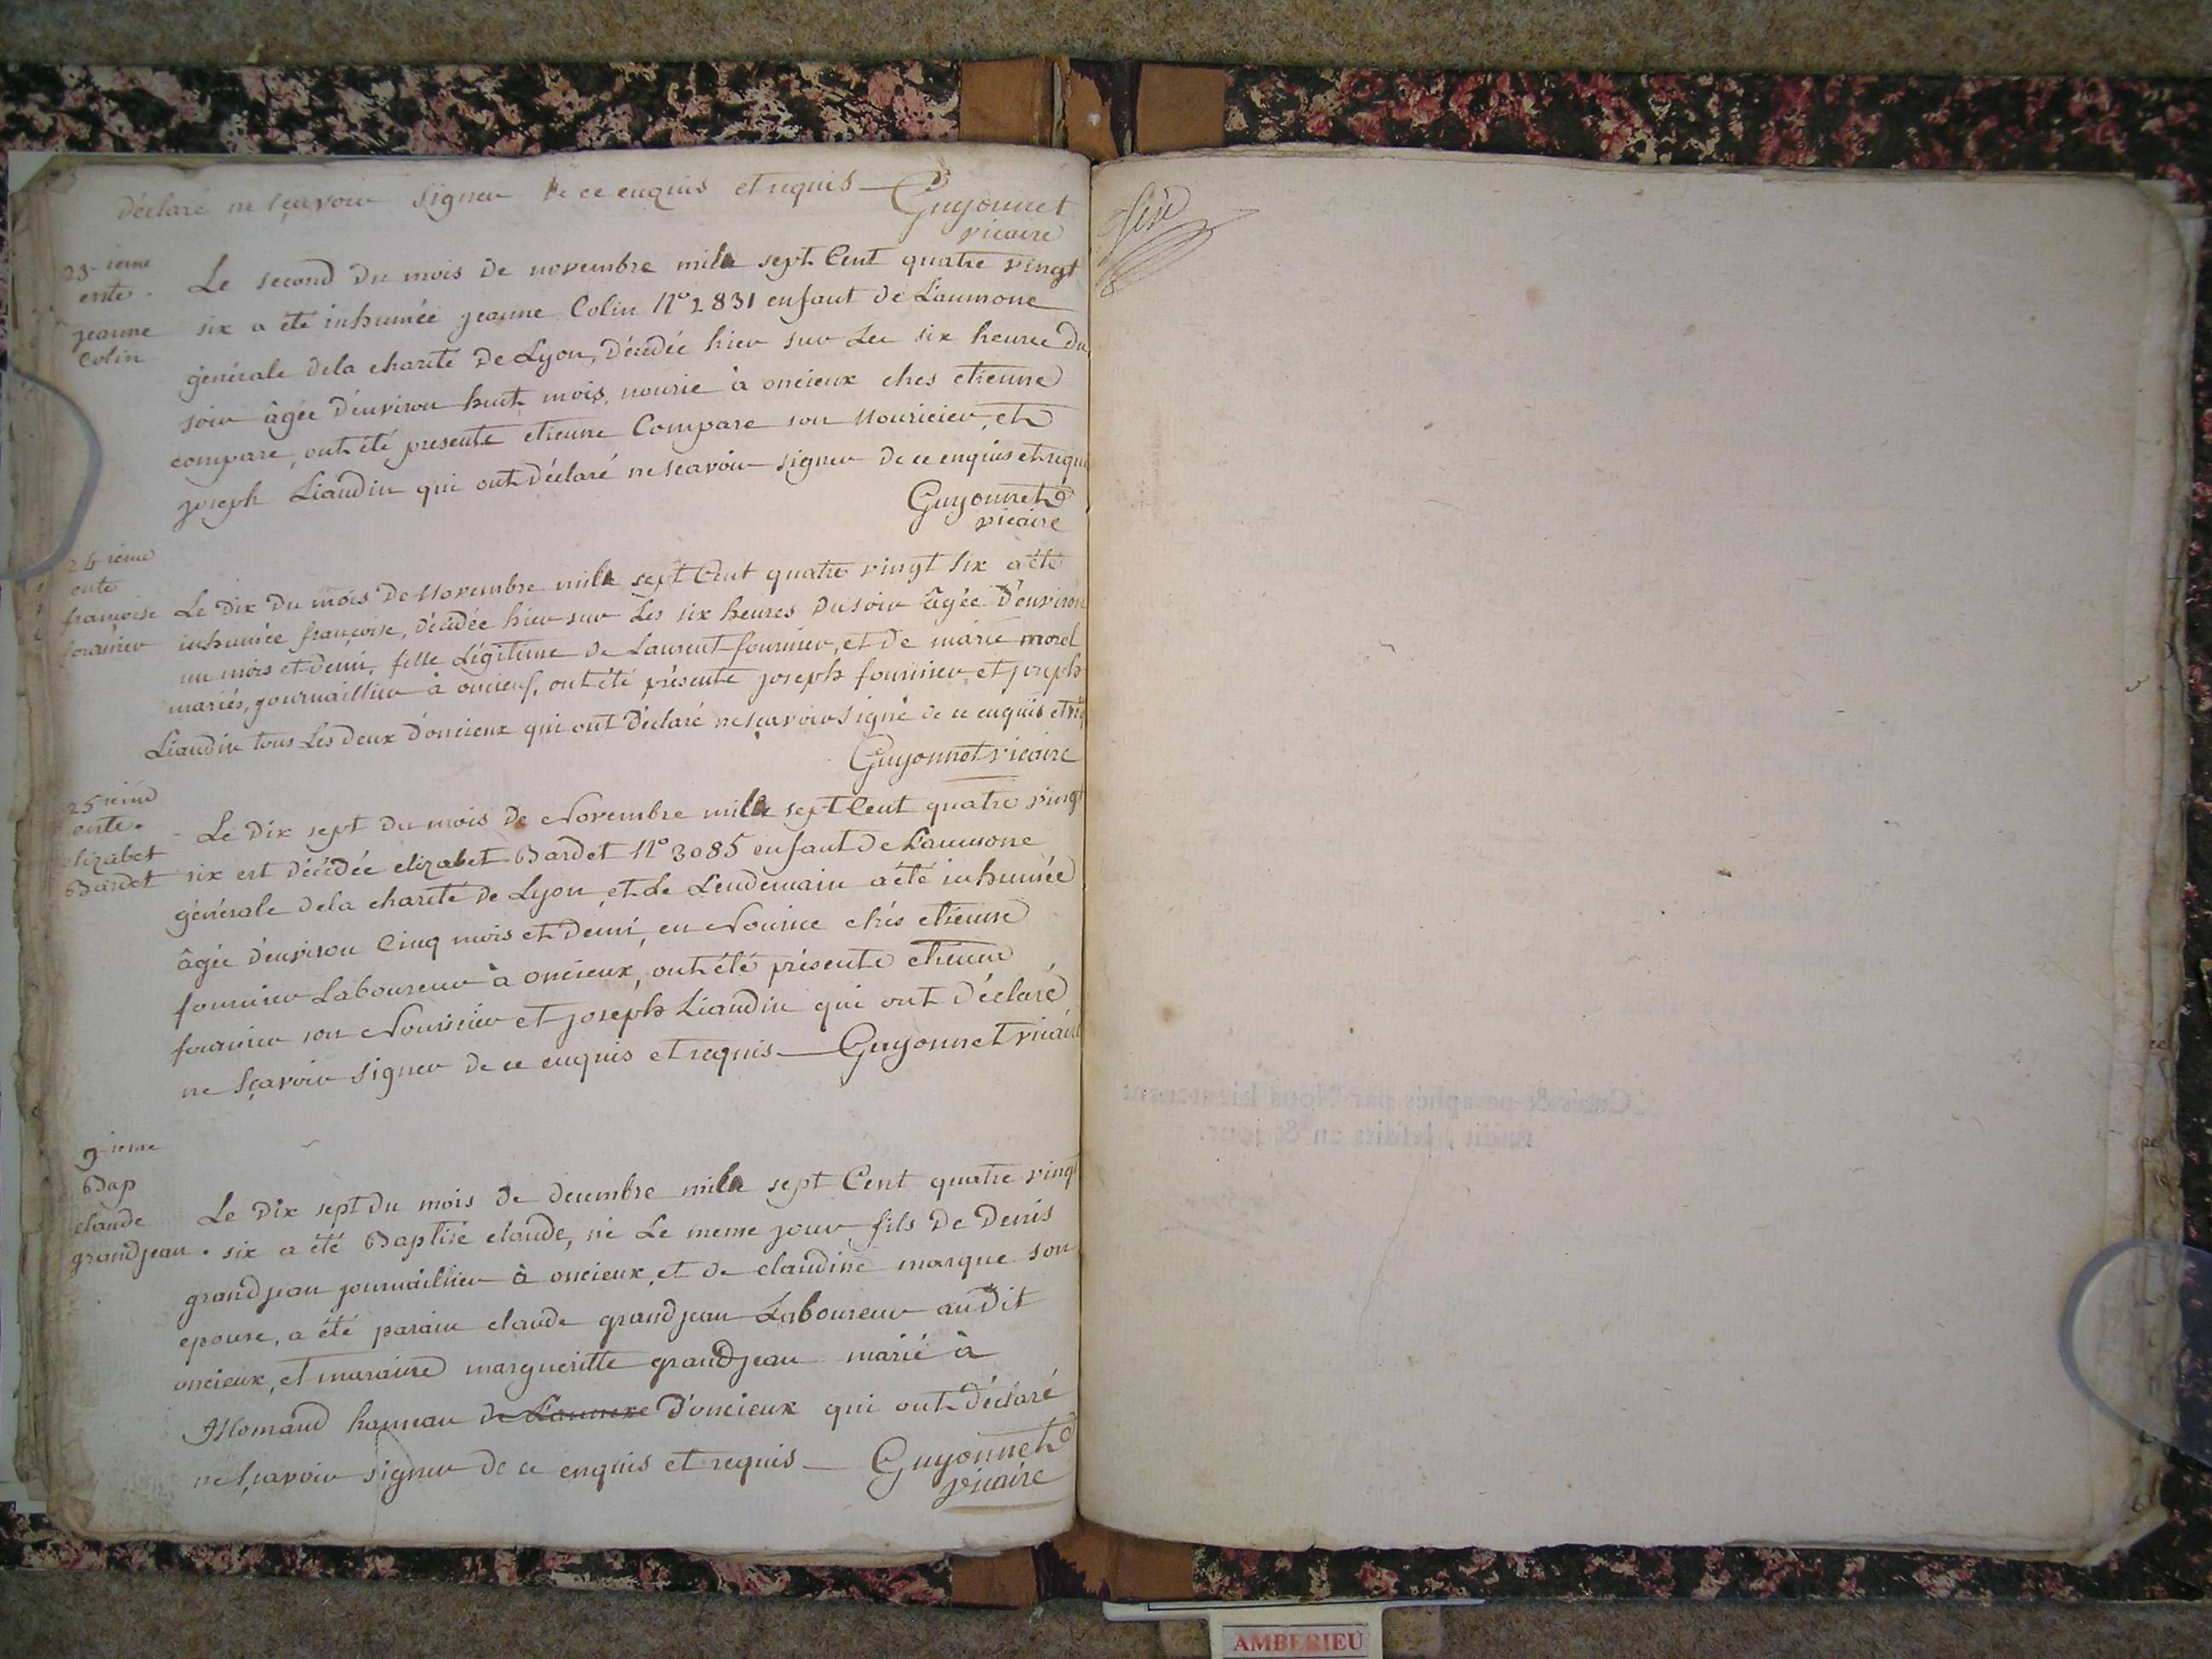 déclaré ne sçavoir signer de ce enquis et requis — Guyonnet
vicaire
23-ieme
ente.
jeanne
Colin
Le second du mois de novembre mile sept Cent quatre vingt
six a été inhumée jeanne Colin N° 2831 enfant de L'aumone
générale dela charité de Lyon, décédée hier sur Les six heures du
soir âgée d'environ huit mois, nourie à oncieux ches etienne
compare, ont été presente etienne Compare son Nouricier, et
joseph Liaudin qui ont déclaré ne sçavoir signer de ce enquis et requi
Guyonnet
vicaire
24 ieme
ente
françoise
fournier
Le dix du mois de Novembre mile sept Cent quatre vingt six a été
inhumée françoise, décédée hier sur Les six heures du soir âgée d'environ
un mois et demi, fille Légitime de Laurent fournier, et de marie morel
mariés, journaillier à oncieux, ont été présente joseph fournier et joseph
Liaudin tous Les deux d'oncieux qui ont déclaré ne sçavoir signé de ce enquis et req
Guyonnet vicaire
25 ieme
ente.
elizabet
Bardet
Le dix sept du mois de Novembre mile sept Cent quatre vingt
six est décédée elizabet Bardet N° 3085 enfant de L'aumone
générale dela charité de Lyon, et Le Lendemain a été inhumée
âgée d'environ Cinq mois et demi, en Nourice chés etienne
fournier Laboureur à oncieux, ont été présente etienne
fournier son Nouricier et joseph Liaudin qui ont déclaré
ne sçavoir signer de ce enquis et requis — Guyonnet vicaire
9-ieme
Bap
claude
grandjean.
Le Dix sept du mois de decembre mile sept Cent quatre vingt
six a été Baptisé claude, né Le meme jour fils de Denis
grandjean journaillier à oncieux, et de claudine marque son
epouse, a été parain claude grandjean Laboureur audit
oncieux, et maraine margueritte grandjean marié à
Momand hameau de L'annexe d'oncieux qui ont déclaré
ne sçavoir signer de ce enquis et requis — Guyonnet
vicaire
Cottés & paraphés par Nous Lieutenant
susdit, lesdits an & jour.
AMBERIEU